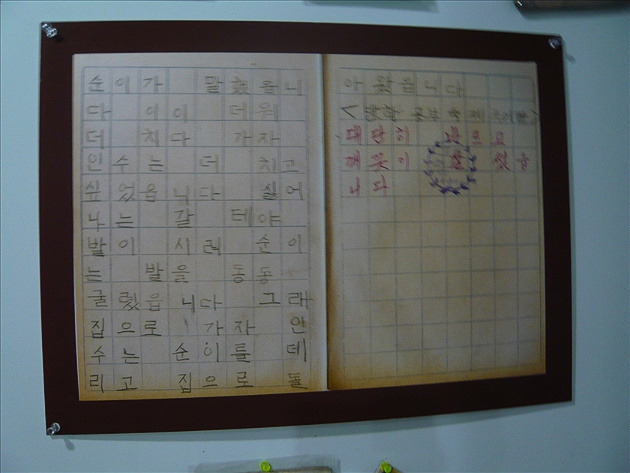 순이가 말했읍니
다 이이 더워
더 치다 가자
인수는 더 치고
싶었읍니다 싫어
나는 갈 테야
발이 시려 순이
는 발을 동동
굴렀읍니다 그래
집으로 가자 인
수는 순이를 데
리고 집으로 돌
아 왔읍니다
대단히
깨끗이 썼
니다